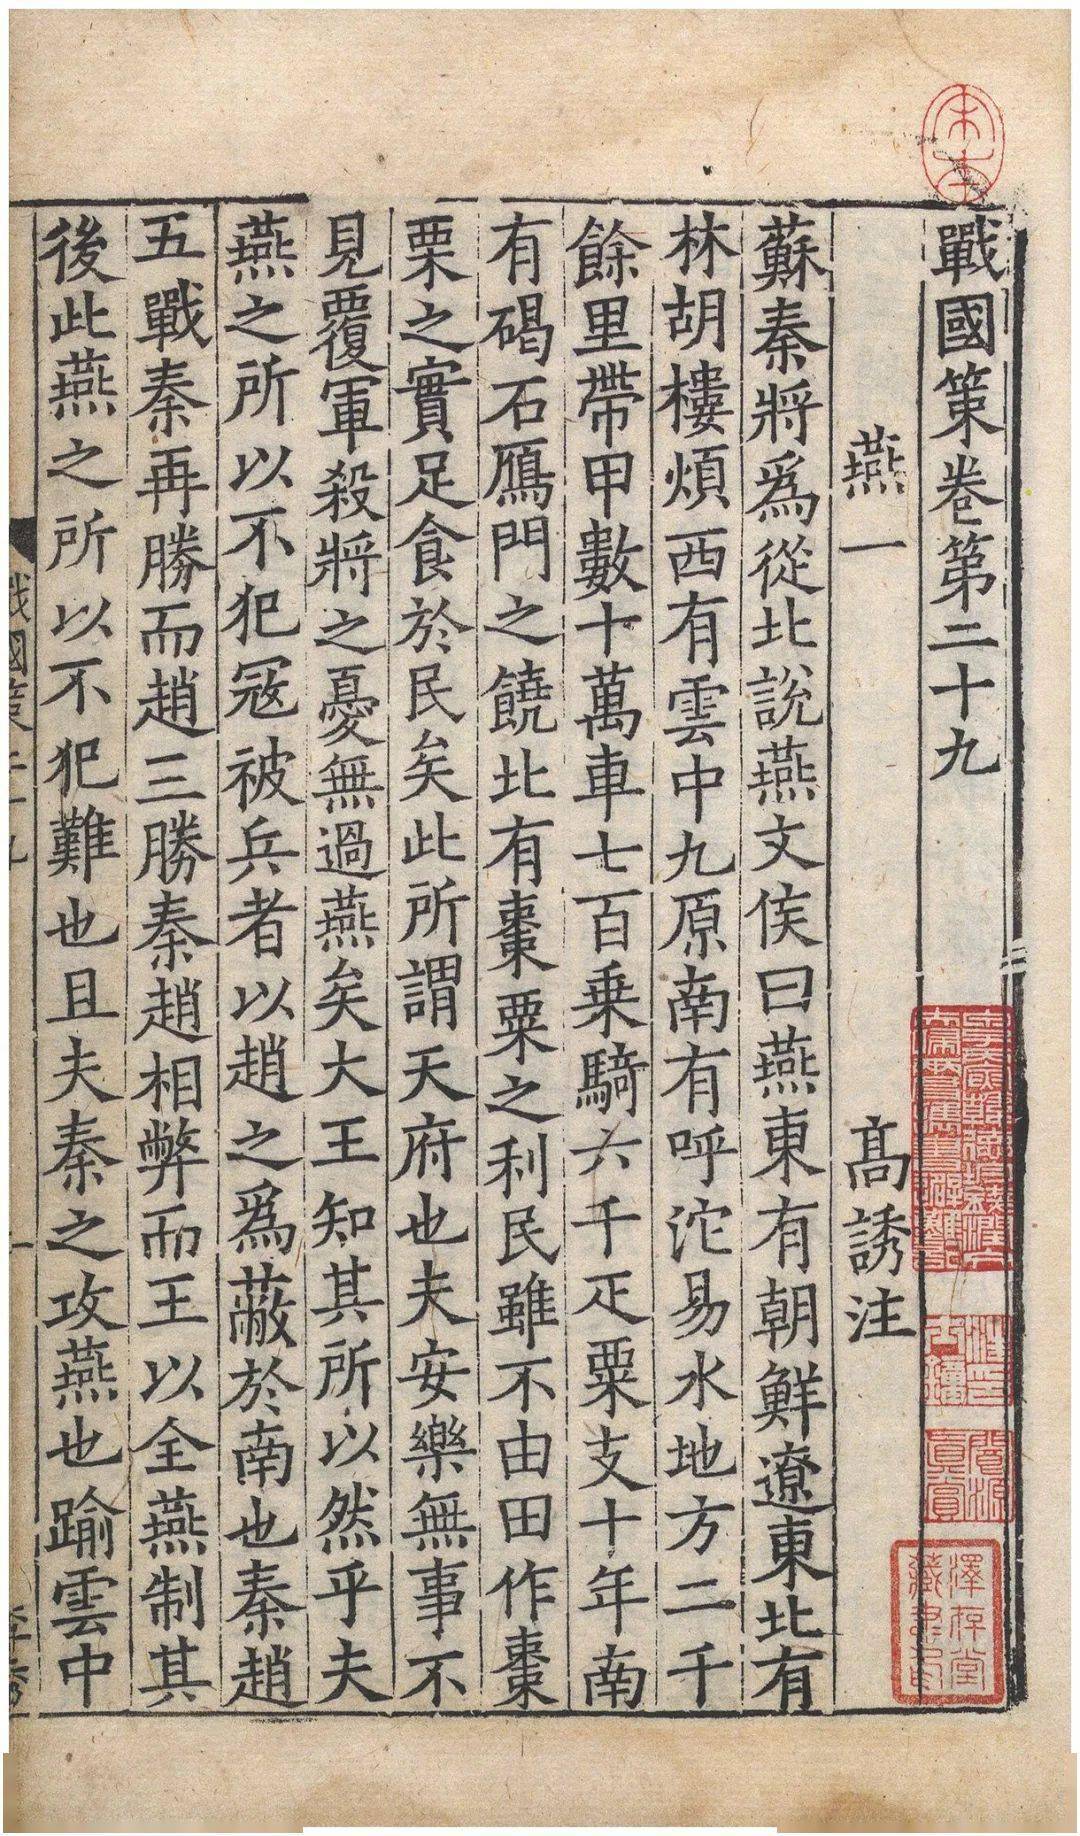 戰國策卷第二十九
燕一
高誘注
蘇秦將爲從北說燕文侯曰燕東有朝鮮遼東北有
林胡樓煩西有雲中九原南有呼沱易水地方二千
餘里帶甲數十萬車七百乗騎六千疋粟支十年南
有碣石鴈門之饒北有棗粟之利民雖不由田作棗
栗之實足食於民矣此所謂天府也夫安樂無事不
見覆軍殺將之憂無過燕矣大王知其所以然乎夫
燕之所以不犯冦被兵者以趙之爲蔽於南也秦趙
五戰秦再勝而趙三勝秦趙相弊而王以全燕制其
後此燕之所以不犯難也且夫秦之攻燕也踰雲中
戰國策二十九
一
李秀
澤存堂
藏書印